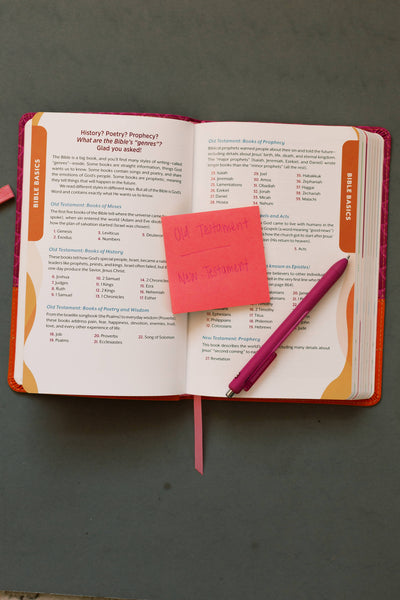 BIBLE BASICS
History? Poetry? Prophecy?
What are the Bible's "genres"?
Glad you asked!
The Bible is a big book, and you'll find many styles of writing—called
"genres"—inside. Some books are straight information, things God
wants us to know. Some books contain songs and poetry, and share
the emotions of God's people. Some books are prophetic, meaning
they tell things that will happen in the future.
We read different styles in different ways. But all of the Bible is God's
Word and contains exactly what He wants us to know.
Old Testament: Books of Moses
The first five books of the Bible tell where the universe came
spoke), when sin entered the world (Adam and Eve
how the plan of salvation started (Israel was chosen).
1. Genesis
2. Exodus
3. Leviticus
4. Numbers
5.
Old Testament: Books of History
These books tell how God's special people, Israel, became a
leaders like prophets, priests, and kings. Israel often failed, but
one day produce the Savior, Jesus Christ.
6. Joshua
7. Judges
8. Ruth
9. 1 Samuel
10. 2 Samuel
11. 1 Kings
12. 2 Kings
13. 1 Chronicles
14. 2
15. Ezra
16. Nehemiah
17. Esther
Old Testament: Books of Poetry and Wisdom
From the Israelite songbook (the Psalms) to everyday wisdom (Proverbs),
these books address pain, fear, happiness, devotion, enemies, trust,
love, and every other experience of life.
18. Job
19. Psalms
20. Proverbs
21. Ecclesiastes
22. Song of Solomon
Old Testament: Books of Prophecy
Biblical prophets warned people about their sin and told the future—
including details about Jesus' birth, life, death, and eternal kingdom.
The "major prophets" (Isaiah, Jeremiah, Ezekiel, and Daniel) wrote
longer books than the "minor prophets" (all the rest).
23. Isaiah
24. Jeremiah
25. Lamentations
26. Ezekiel
27. Daniel
28. Hosea
29. Joel
30. Amos
31. Obadiah
32. Jonah
33. Micah
34. Nahum
35. Habakkuk
36. Zephaniah
37. Haggai
38. Zechariah
39. Malachi
BIBLE BASICS
Old Testament
New Testament
and Acts
God came to live with humans in the
Gospels (a word meaning "good news")
show the church got to start after Jesus'
(His return to heaven).
5. Acts
known as Epistles)
believers to other individual
11. Philippians
12. Colossians
16. Titus
18. Philemon
19. Hebrews
New Testament: Prophecy
This book describes the
Jesus' "second coming" to
27. Revelation